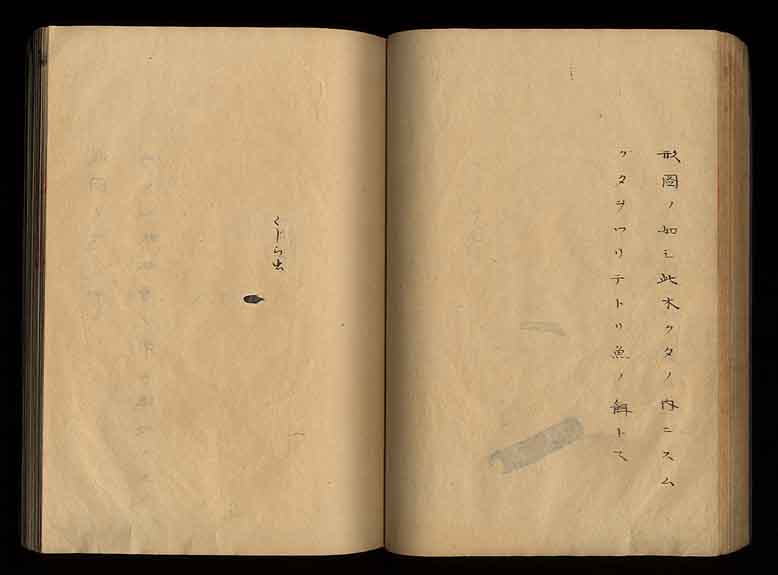 形圖ノ如シ此木クタノ内ニスム
クタヲワリテトリ魚ノ餌トス
くじら虫